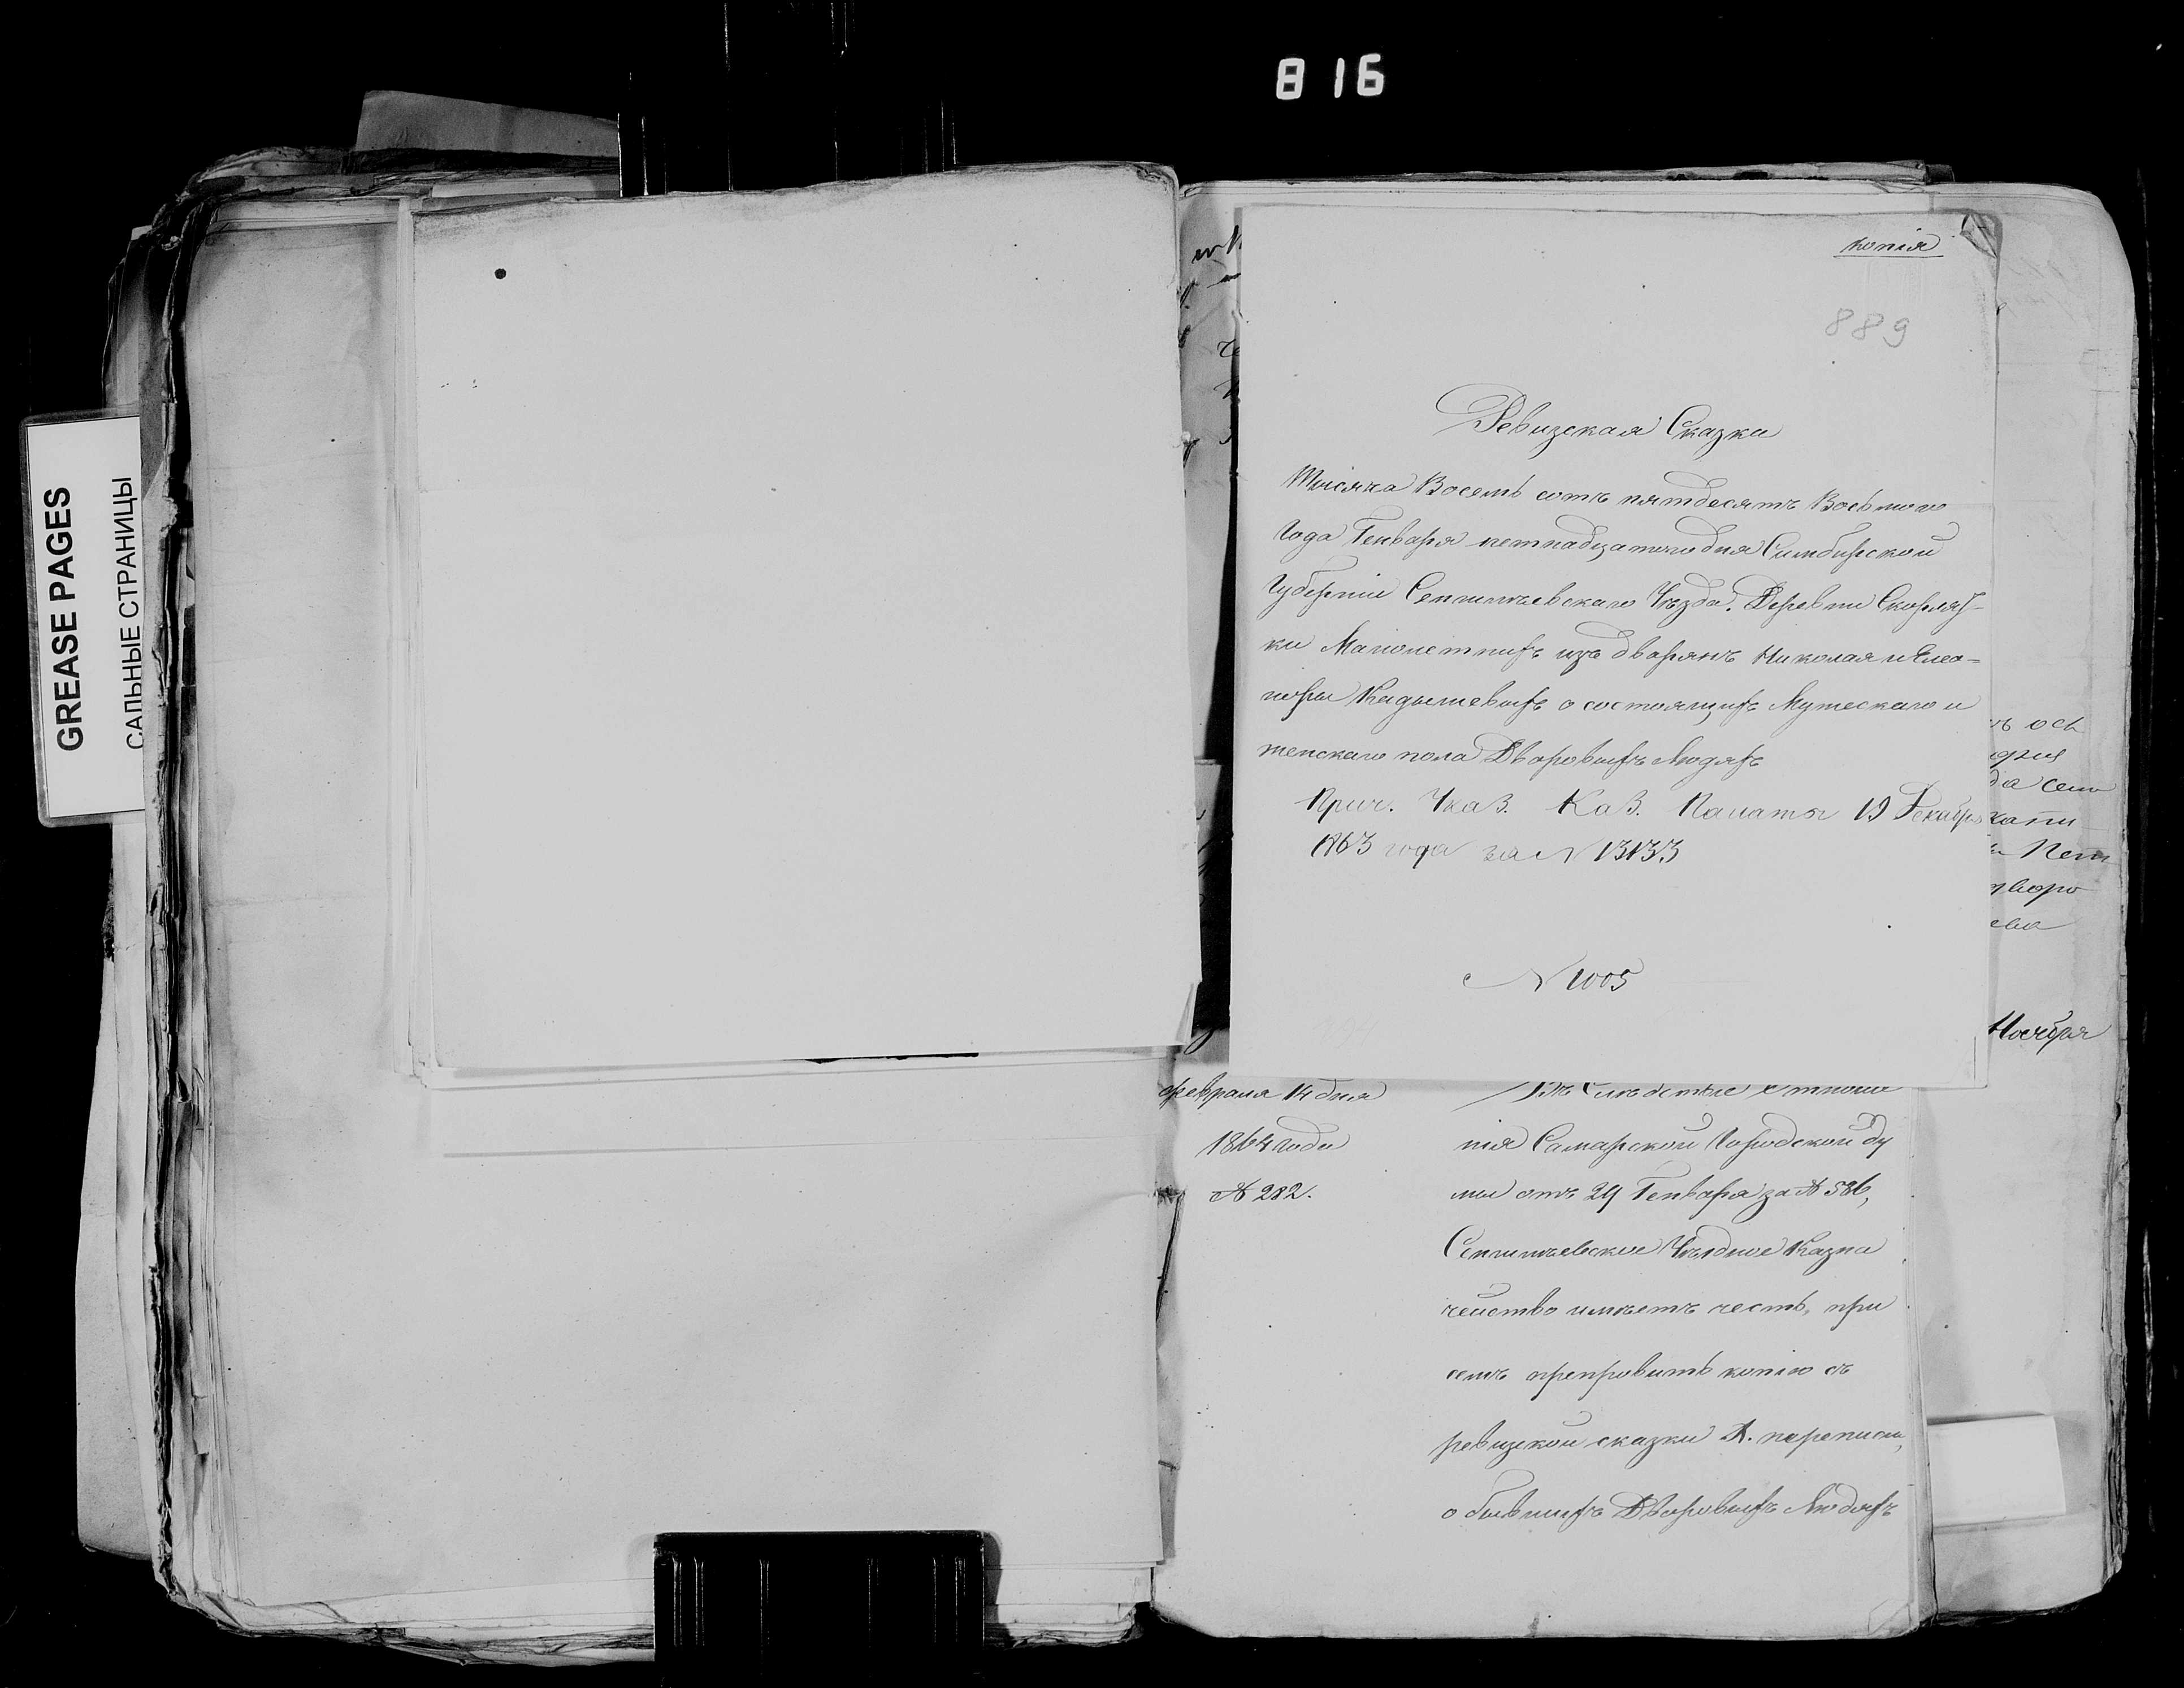 816
GREASE PAGES
САЛЬНЫЕ СТРАНИЦЫ
копія
889
Ревизская Сказка
Тысяча Восемь сотъ пятдесятъ Восьмого
Года Генваря петнадцатого дня Симбирской
Губерніи Сенгилѣевскаго Уѣзда. Деревни
ки Малолетнихъ изъ дворянъ Николая и Елео-
норы Кадышевыхъ о состоящихъ Мужескаго и
женскаго пола Дворовыхъ Людяхъ
Прич. Указ. Каз. Палаты 19 Декабря
1863 года за N 13133
N 1005
ъ ось
да семи
Пет
ева
Ноября
февраля 14 дня
1864 года
№ 282.
Въ Слѣдствіе отноше
нія Самарской Городской Ду
мы отъ 29 Генваря за № 586,
Сенгилѣевское Уѣздное Казна
чейство имѣетъ честь, при
семъ препровить копію съ
ревизкой сказки X. переписи,
о бывшихъ Дворовыхъ Людяхъ